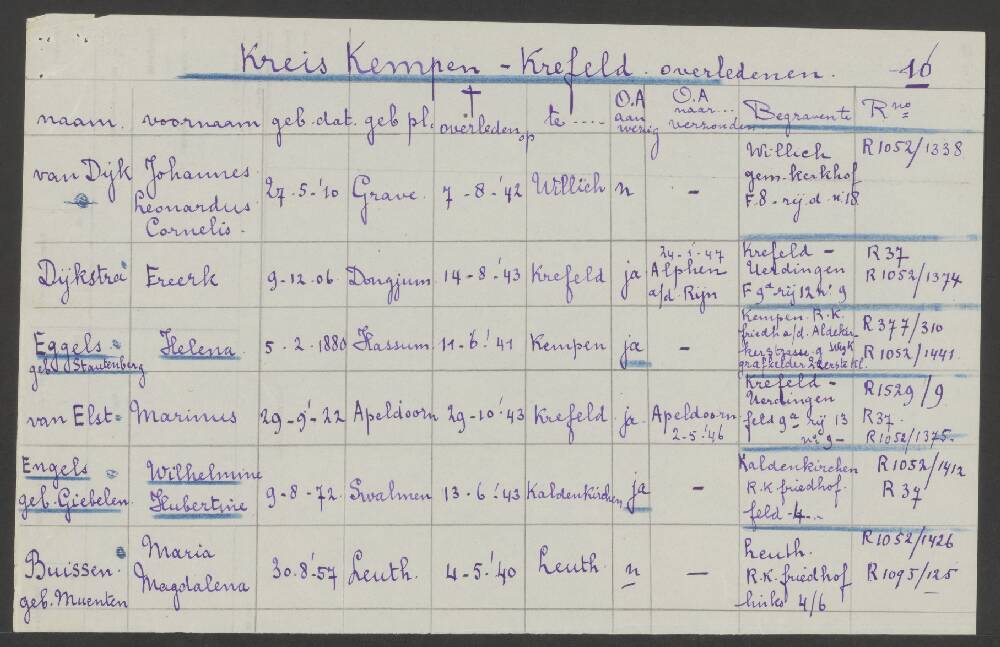 Kreis Kempen - Krefeld. overledenen. -16
naam. voornaam geb. dat. geb pl. † overleden op te ..... O.A aan wezig O.A naar... verzonden Begravente R no
van Dijk Johannes Leonardus Cornelis. 27-5-'10 Grave. 7-8-'42 Willich n - Willich gem. kerkhof F.8. rij.d. n:18 R1052/1338
Dijkstra Ereerk 9-12.06. Dongjum. 14-8-'43 Krefeld ja 24-1-'47 Alphen a/d Rijn Krefeld - Uerdingen F 9a rij 12 no 9 R37 R1052/1374
Eggels geb. Stautenberg Helena 5.2.1880 Hassum. 11-6-'41 Kempen ja - Kempen. R.K. friedh. a/d. grafkelder R377/310 R1052/1441.
van Elst Marinus 29-9-22 Apeldoorn 29-10-'43 Krefeld ja. Apeldoorn 2-5-'46 Krefeld - Uerdingen feld 9a rij 13 no 9- R1529/9 R37. R1052/1375.
Engels geb. Giebelen Wilhelmine Hubertine 9-8-72. Swalmen 13-6-'43 Kaldenkirchen ja - Kaldenkirchen R.K friedhof. feld -4... R1052/1412 R 37
Buissen. geb. Muenten Maria Magdalena 30.8-'57 Leuth. 4-5-'40 Leuth. n — Leuth. R.K. friedhof links 4/6 R1052/1426 R1095/125